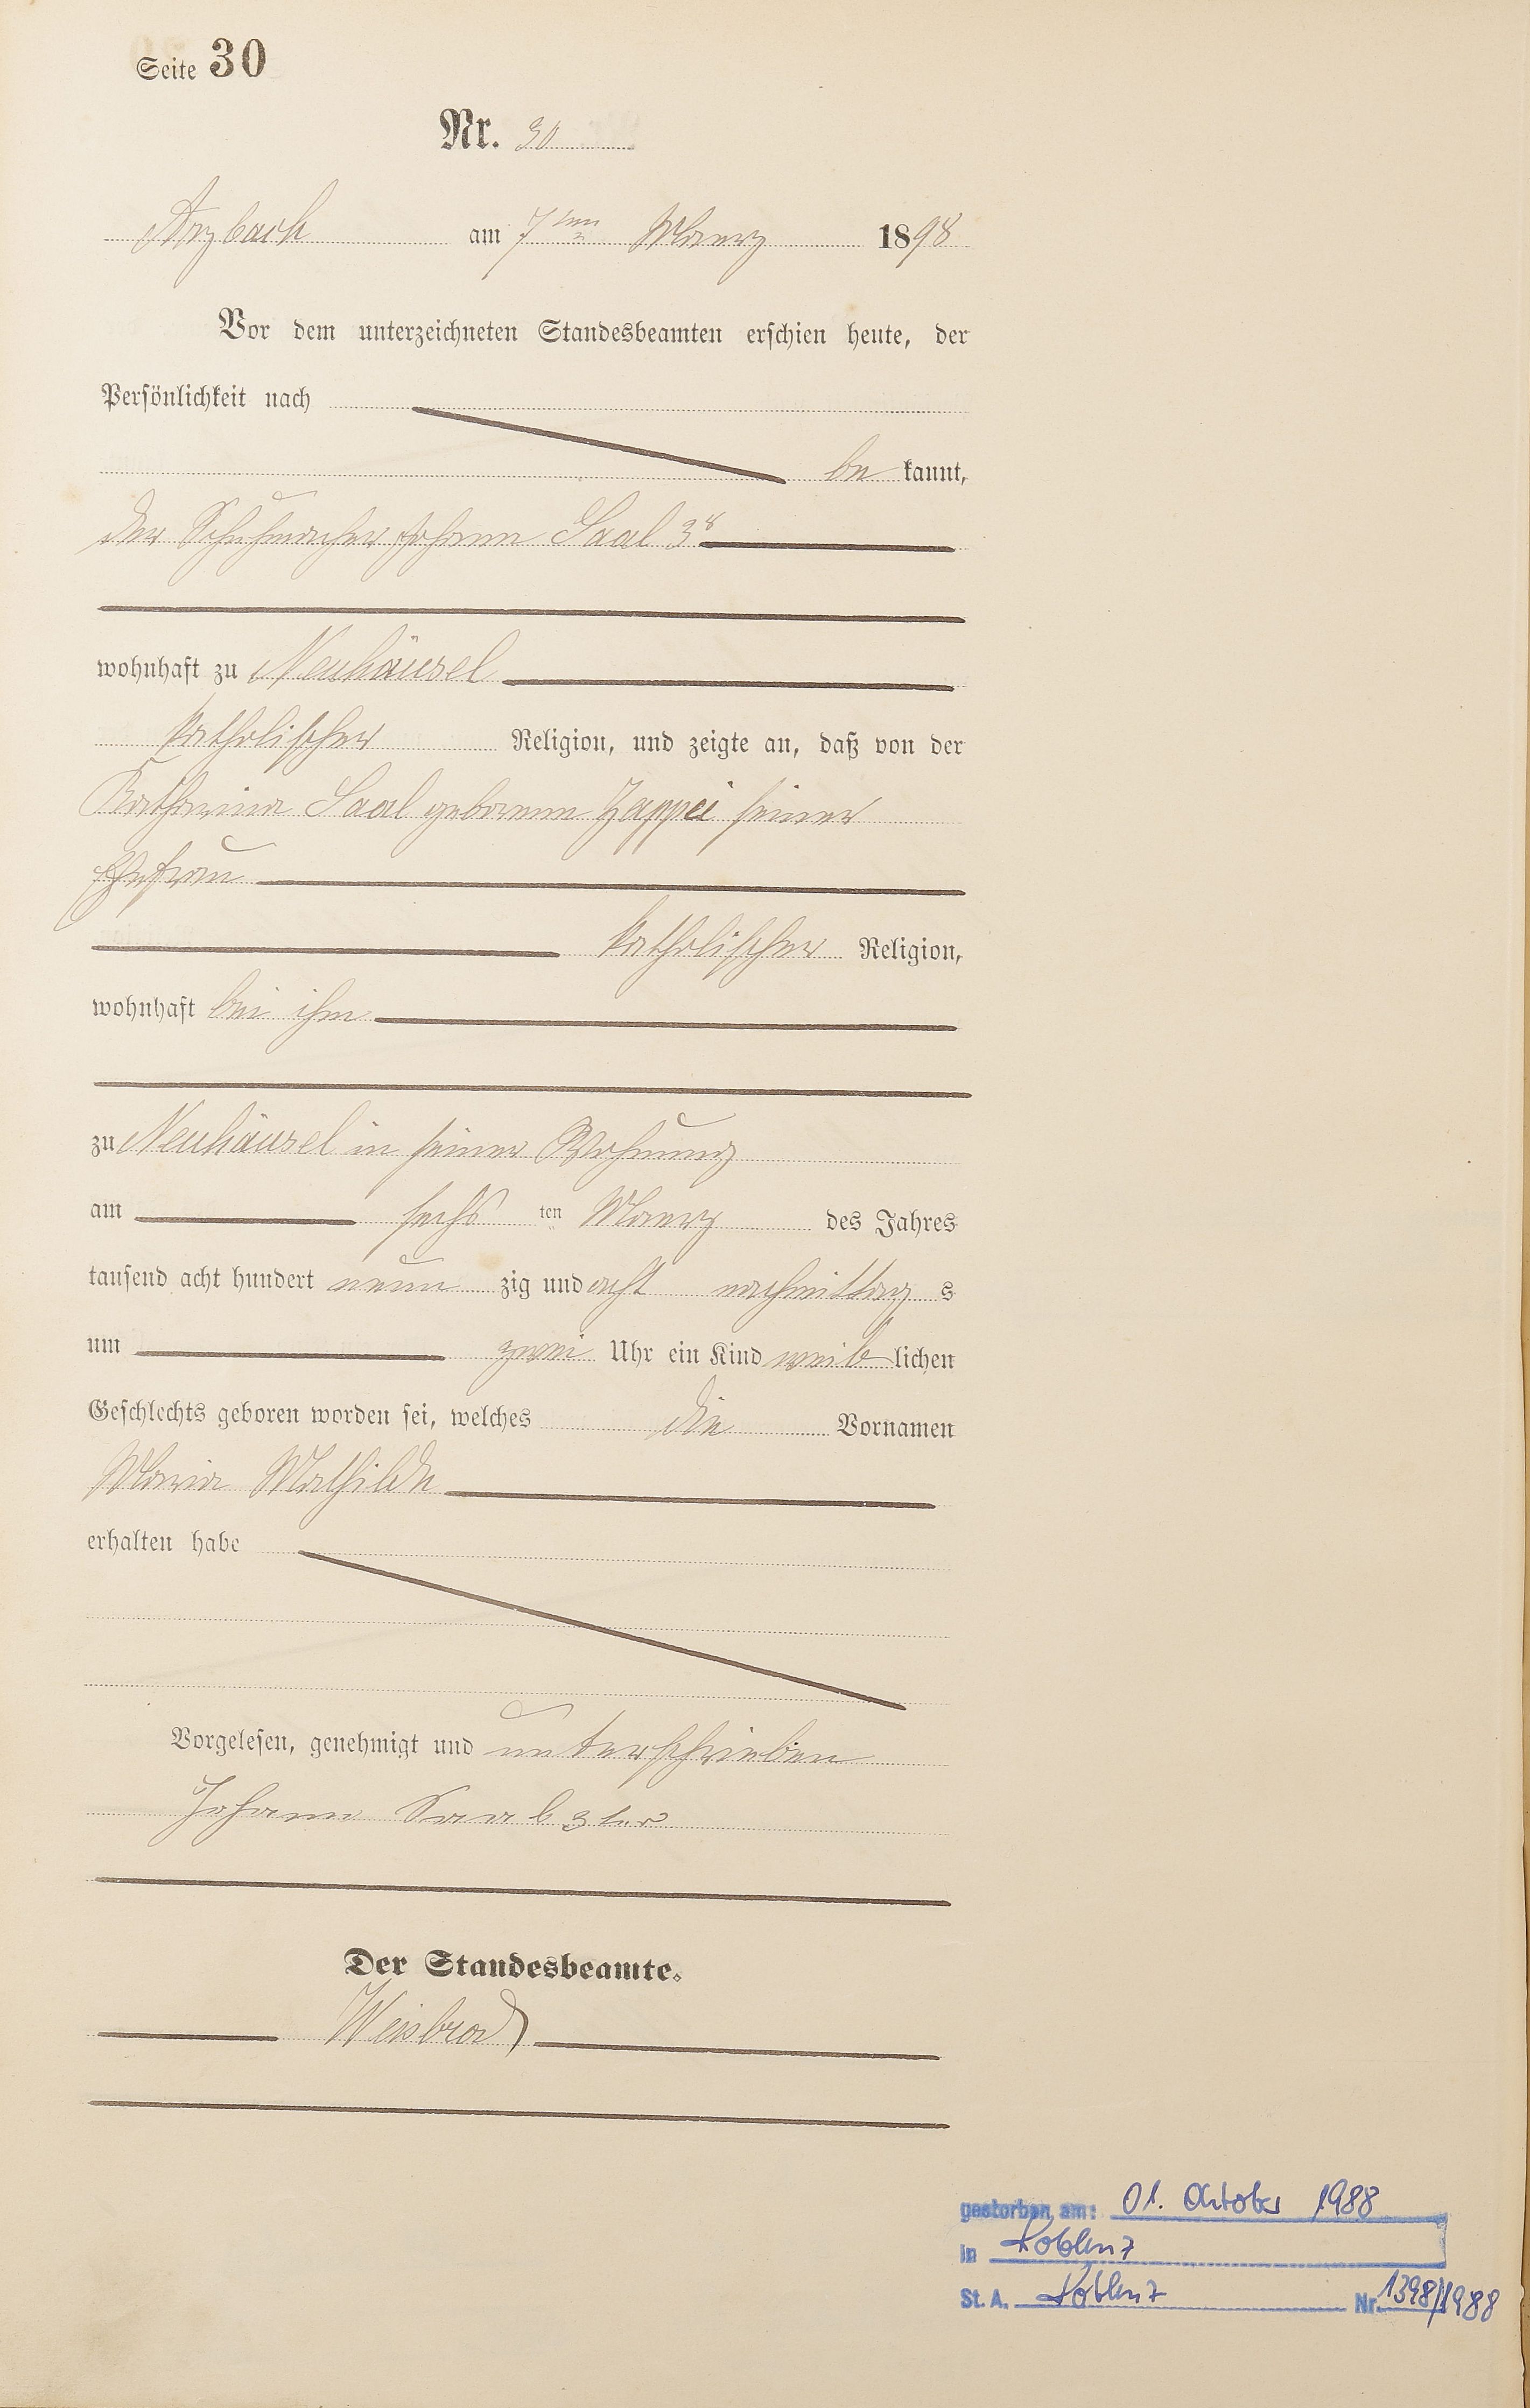 Seite 30
Nr. 30
Arzbach am 7ten Maerz 1898
Vor dem unterzeichneten Standesbeamten erschien heute, der
Persönlichkeit nach
be kannt,
der Schuhmacher Johann Saal 3r
wohnhaft zu Neuhäusel
katholischer Religion, und zeigte an, daß von der
Katharina Saal geborene Zappei seiner
Ehefrau
katholischer Religion,
wohnhaft bei ihm
zu Neuhäusel in seiner Wohnung
am sechs ten Maerz des Jahres
tausend acht hundert neun zig und acht nachmittag s
um zwei Uhr ein Kind weib lichen
Geschlechts geboren worden sei, welches die Vornamen
Maria Mathilde
erhalten habe
Vorgelesen, genehmigt und unterschrieben
Johann Saal 3ter
Der Standesbeamte.
Weisbrod
gestorben am: 01. Oktober 1988
in Koblenz
St. A. Koblenz Nr. 1398/1988